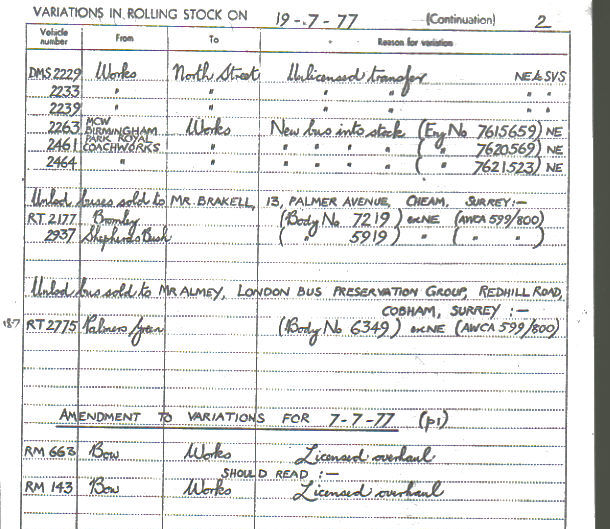 VARIATIONS IN ROLLING STOCK ON 19-7-77 (Continuation) 2
Vehicle number From To Reason for variation
DMS 2229 Works North Street Unlicensed transfer NE to SVS
2233 " " " " " "
2239 " " " " " "
2263 MCW BIRMINGHAM Works New bus into stock (Eng No 7615659) NE
2461 PARK ROYAL COACHWORKS " " " " " ( " 7620569) NE
2464 " " " " " " ( " 7621523) NE
Unlcd buses sold to MR. BRAKELL, 13, PALMER AVENUE, CHEAM, SURREY:-
RT 2177 Bromley (Body No 7219) ex NE (AWCA 599/800)
2937 Shepherds Bush ( " 5919) " ( " " )
Unlcd bus sold to MR ALMEY, LONDON BUS PRESERVATION GROUP, REDHILL ROAD,
COBHAM, SURREY :-
187 RT 2775 Palmers Green (Body No 6349) ex NE (AWCA 599/800)
AMENDMENT TO VARIATIONS FOR 7-7-77 (p1)
RM 663 Bow Works Licensed overhaul
SHOULD READ :-
RM 143 Bow Works Licensed overhaul